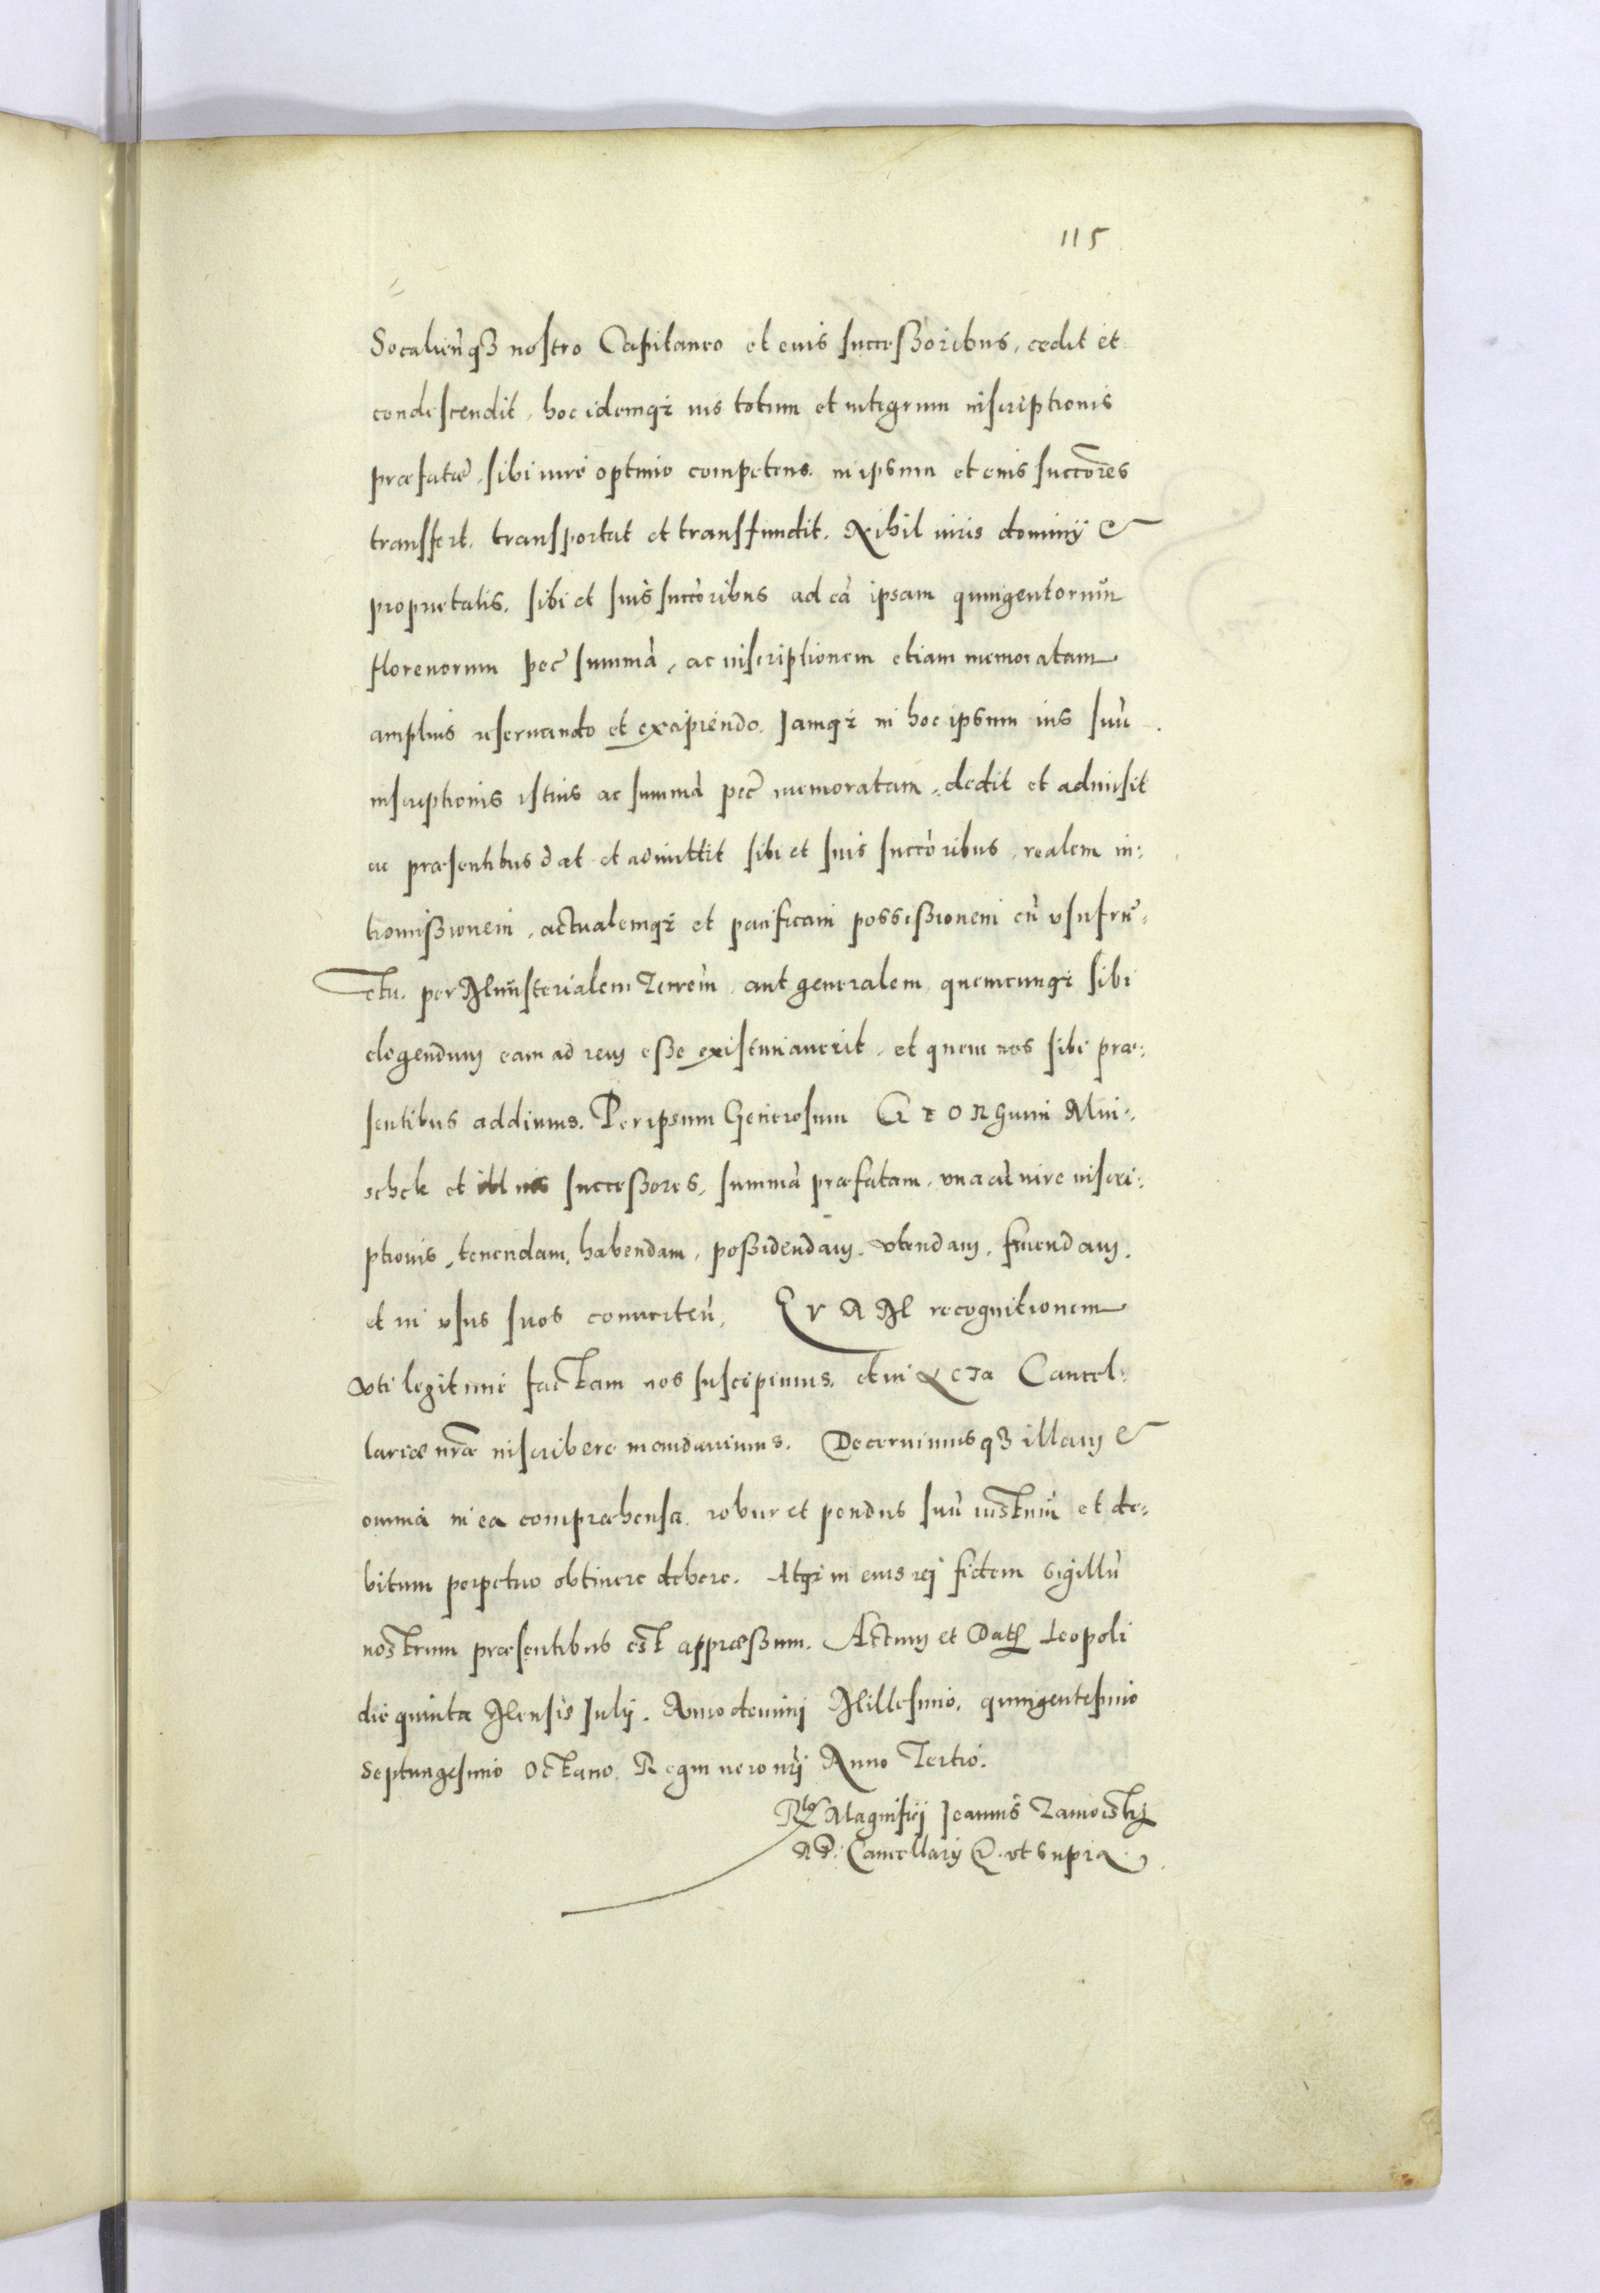 115
Socalien̄qꝫ nostro Capitaneo et eius successoribus, cedit et
condescendit, hoc idemqꝫ ius totum et integrum inscriptionis
præfatæ, sibi iure optimo competens, in ipsum et eius succōres
transfert, transportat et transfundit. Nihil iuris dominij &
proprietatis, sibi et suis succōribus ad eā ipsam quingentorum
florenorum pec̄ summā, ac inscriptionem etiam memoratam
amplius reseruando et excipiendo. Jamqꝫ in hoc ipsum ius suū
inscriptionis istius ac summā pec̄ memoratam, dedit et admisit
ac præsentibus dat et admittit sibi et suis succōribus, realem in:
tromissionem, actualemqꝫ et pacificam possessionem cū vsufru:
ctu. per Ministerialem Terrēm, aut generalem, quemcunqꝫ sibi
elegendum eam ad rem esse existimauerit, et quem nos sibi præ:
sentibus addimus. Per ipsum Generosum GEORGium Mni:
schek et successores, summā præfatam, vna cū iure inscri:
ptionis, tenendam, habendam, possidendam, vtendam, fruendam,
et in vsus suos conuerten̄. QVAM recognitionem
vti legitime factam nos suscepimus, et in Acta Cancel:
lariæ nr̄æ inscribere mandauimus. Decernimusqꝫ illam &
omnia in ea compræhensa, robur et pondus suū iustum et de:
bitum perpetuo obtinere debere. Atqꝫ in eius rej fidem sigillū
nostrum præsentibus est appræssum. Actum et Dat Leopoli
die quinta Mensis Julij. Anno dominj Millesimo, quingentesimo
septuagesimo octauo. Regni uero nr̄j Anno Tertio.
Rlo Magnificj Joannis Zamoiskj
R. P. Cancellarij &. vt supra.